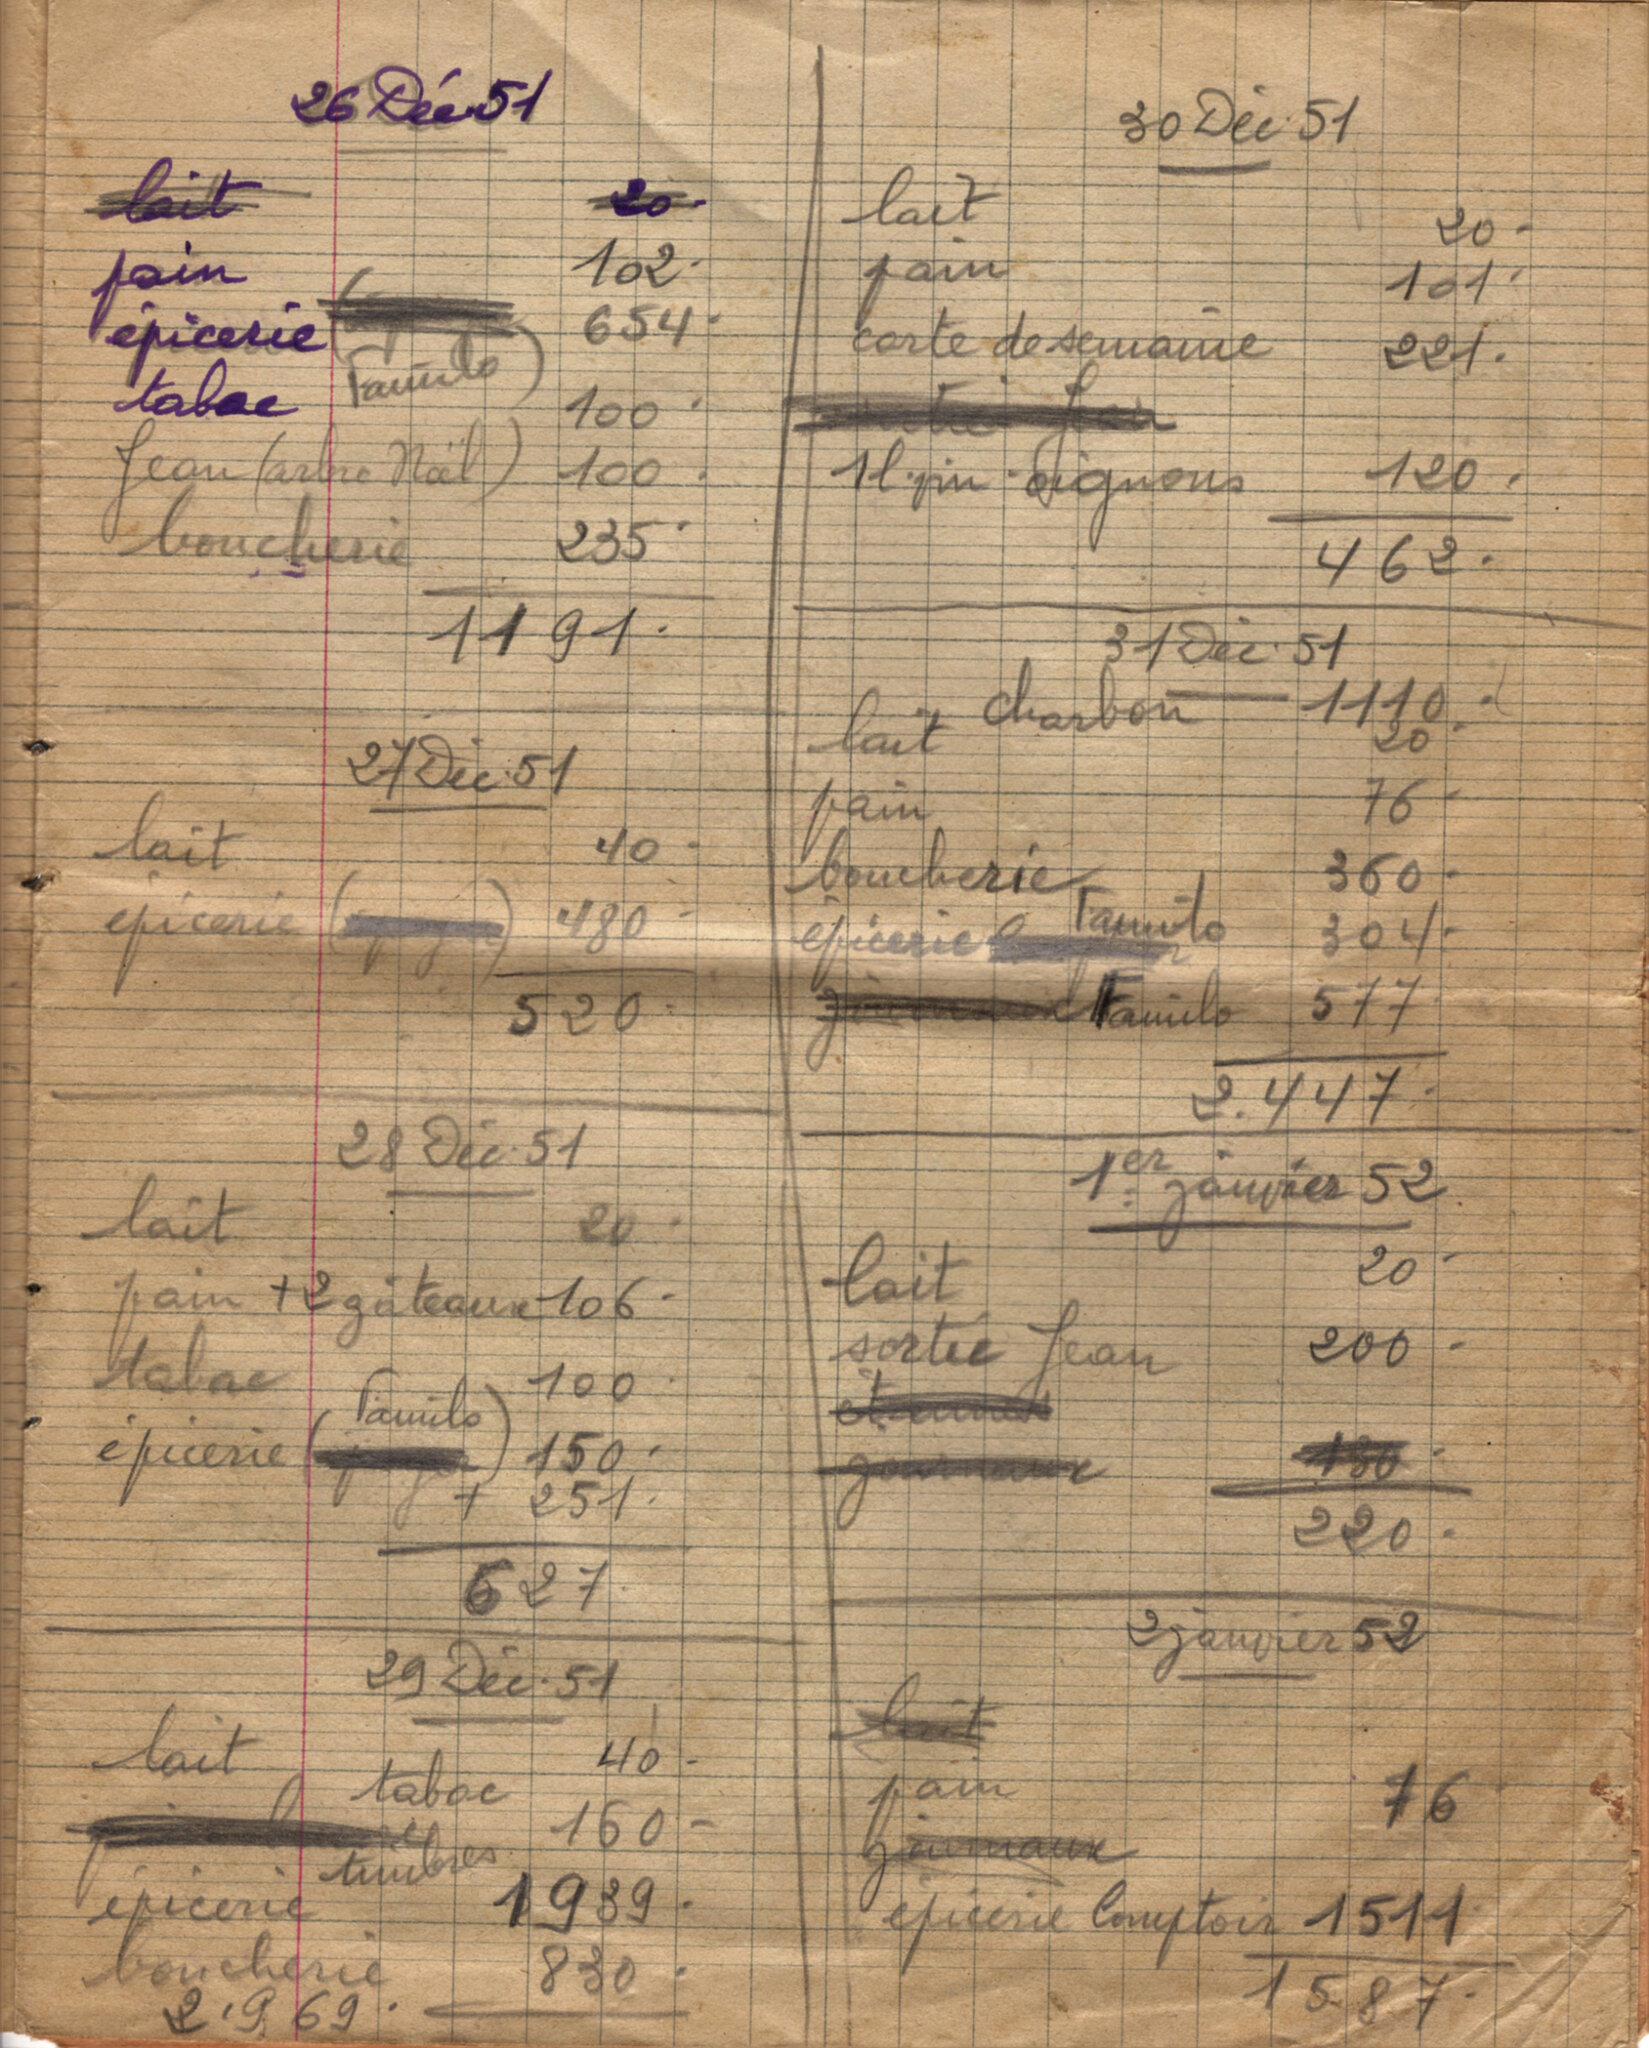 26 Déc. 51
lait 20.
pain 102.
épicerie ( 654.
Familo)
tabac 100.
Jean (arbre Noël) 100.
boucherie 235.
1191.
27 Déc. 51
lait 40.
épicerie ( ) 480.
520.
28 Déc. 51
lait 20.
pain + 2 gâteaux 106.
tabac 100.
Familo
épicerie ( ) 150.
+ 251.
627.
29 Déc. 51
lait 40.
tabac
160.
timbres
épicerie 1939.
boucherie 830.
2.969.
30 Déc. 51
lait 20.
pain 101.
carte de semaine 221.
Jean
1 l. vin. oignons 120.
462.
31 Déc. 51
charbon 1110.
lait 20.
pain 76.
boucherie 360.
épicerie Familo 304.
Familo 577.
2.447.
1er janvier 52
lait 20.
sortie Jean 200.
étrennes
journaux 180.
220.
2 janvier 52
lait
pain 76.
journaux
épicerie Comptoir 1511.
1587.